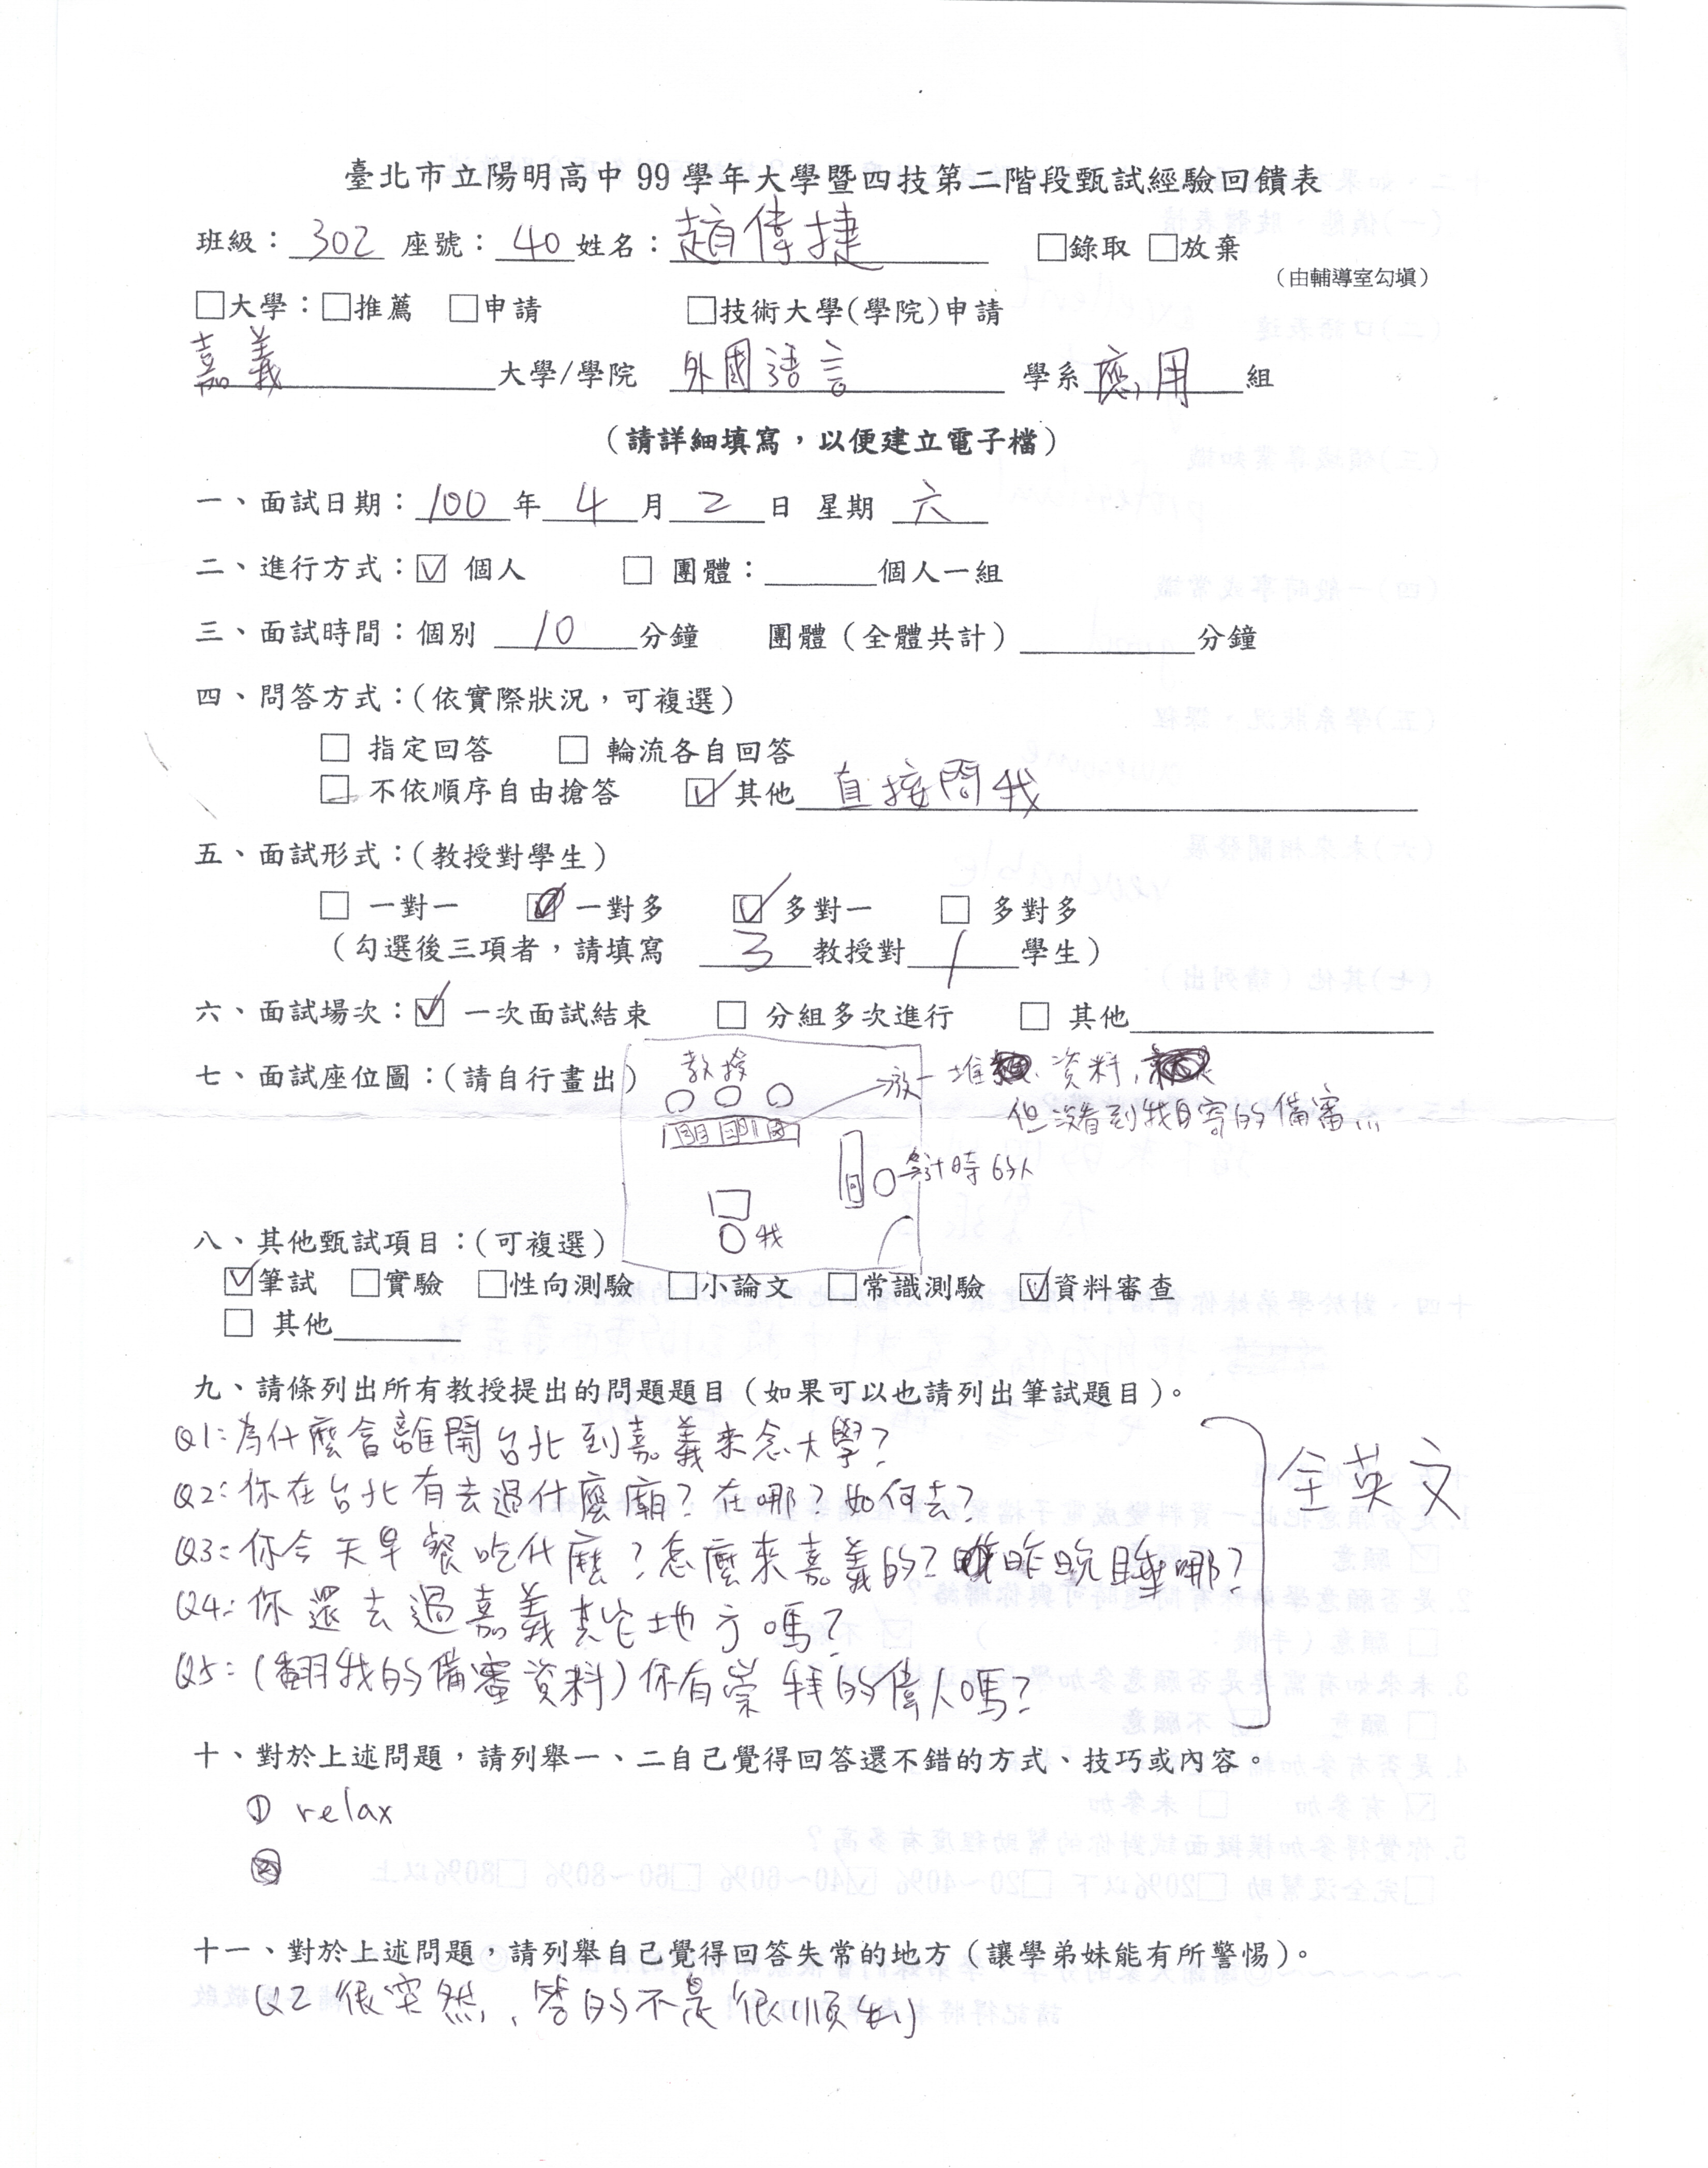 臺北市立陽明高中 99 學年大學暨四技第二階段甄試經驗回饋表
班級：302 座號：40 姓名：趙偉捷 □錄取 □放棄
（由輔導室勾填）
□大學：□推薦 □申請 □技術大學(學院)申請
嘉義大學/學院 外國語言 學系 應用 組
（請詳細填寫，以便建立電子檔）
一、面試日期：100 年 4 月 2 日 星期 六
二、進行方式：☑ 個人 □ 團體：______個人一組
三、面試時間：個別 10 分鐘 團體（全體共計）______分鐘
四、問答方式：(依實際狀況，可複選)
□ 指定回答 □ 輪流各自回答
□ 不依順序自由搶答 ☑ 其他 直接問我
五、面試形式：(教授對學生)
□ 一對一 一對多 ☑ 多對一 □ 多對多
（勾選後三項者，請填寫 3 教授對 1 學生）
六、面試場次：☑ 一次面試結束 □ 分組多次進行 □ 其他______
七、面試座位圖：(請自行畫出)
教授
放一堆資料，
但沒看到我寄的備審…
計時的人
我
八、其他甄試項目：(可複選)
☑筆試 □實驗 □性向測驗 □小論文 □常識測驗 ☑資料審查
□ 其他______
九、請條列出所有教授提出的問題題目（如果可以也請列出筆試題目）。
Q1：為什麼會離開台北到嘉義來念大學？
Q2：你在台北有去過什麼廟？在哪？如何去？
Q3：你今天早餐吃什麼？怎麼來嘉義的？昨晚睡哪？
Q4：你還去過嘉義其它地方嗎？
Q5：（翻我的備審資料）你有崇拜的偉人嗎？
全英文
十、對於上述問題，請列舉一、二自己覺得回答還不錯的方式、技巧或內容。
① relax
十一、對於上述問題，請列舉自己覺得回答失常的地方（讓學弟妹能有所警惕）。
Q2 很突然，答的不是很順利